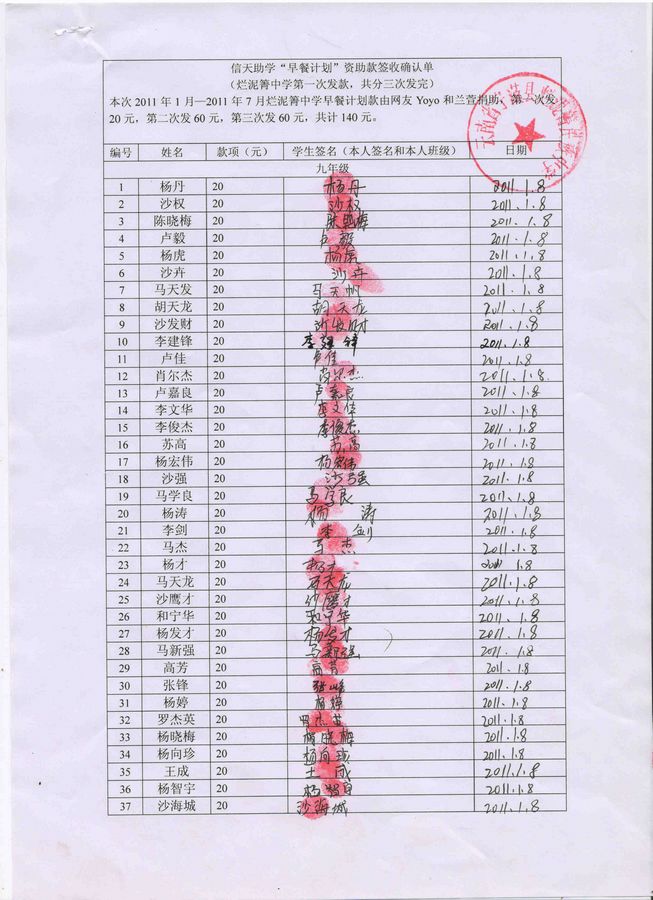 信天助学“早餐计划”资助款签收确认单
（烂泥箐中学第一次发款，共分三次发完）
本次2011年1月—2011年7月烂泥箐中学早餐计划款由网友Yoyo和兰萱捐助，第一次发
20元，第二次发60元，第三次发60元，共计140元。
编号 姓名 款项（元） 学生签名（本人签名和本人班级） 日期
九年级
1 杨丹 20 杨丹 2011.1.8
2 沙权 20 沙权 2011.1.8
3 陈晓梅 20 陈晓梅 2011.1.8
4 卢毅 20 卢毅 2011.1.8
5 杨虎 20 杨虎 2011.1.8
6 沙卉 20 沙卉 2011.1.8
7 马天发 20 马天帆 2011.1.8
8 胡天龙 20 胡天龙 2011.1.8
9 沙发财 20 沙发财 2011.1.8
10 李建锋 20 李建锋 2011.1.8
11 卢佳 20 卢佳 2011.1.8
12 肖尔杰 20 肖尔杰 2011.1.8.
13 卢嘉良 20 卢嘉良 2011.1.8
14 李文华 20 李文华 2011.1.8
15 李俊杰 20 李俊杰 2011.1.8
16 苏高 20 苏高 2011.1.8
17 杨宏伟 20 杨宏伟 2011.1.8
18 沙强 20 沙强 2011.1.8
19 马学良 20 马学良 2011.1.8
20 杨涛 20 杨涛 2011.1.8
21 李剑 20 李剑 2011.1.8
22 马杰 20 马杰 2011.1.8
23 杨才 20 杨才 2011.1.8
24 马天龙 20 马天龙 2011.1.8
25 沙鹰才 20 沙鹰才 2011.1.8
26 和宁华 20 和宁华 2011.1.8
27 杨发才 20 杨发才 2011.1.8
28 马新强 20 马新强 2011.1.8
29 高芳 20 高芳 2011.1.8
30 张锋 20 张峰 2011.1.8
31 杨婷 20 杨婷 2011.1.8
32 罗杰英 20 罗杰英 2011.1.8
33 杨晓梅 20 杨晓梅 2011.1.8
34 杨向珍 20 杨向珍 2011.1.8
35 王成 20 王成 2011.1.8
36 杨智宇 20 杨智 2011.1.8
37 沙海城 20 沙海城 2011.1.8